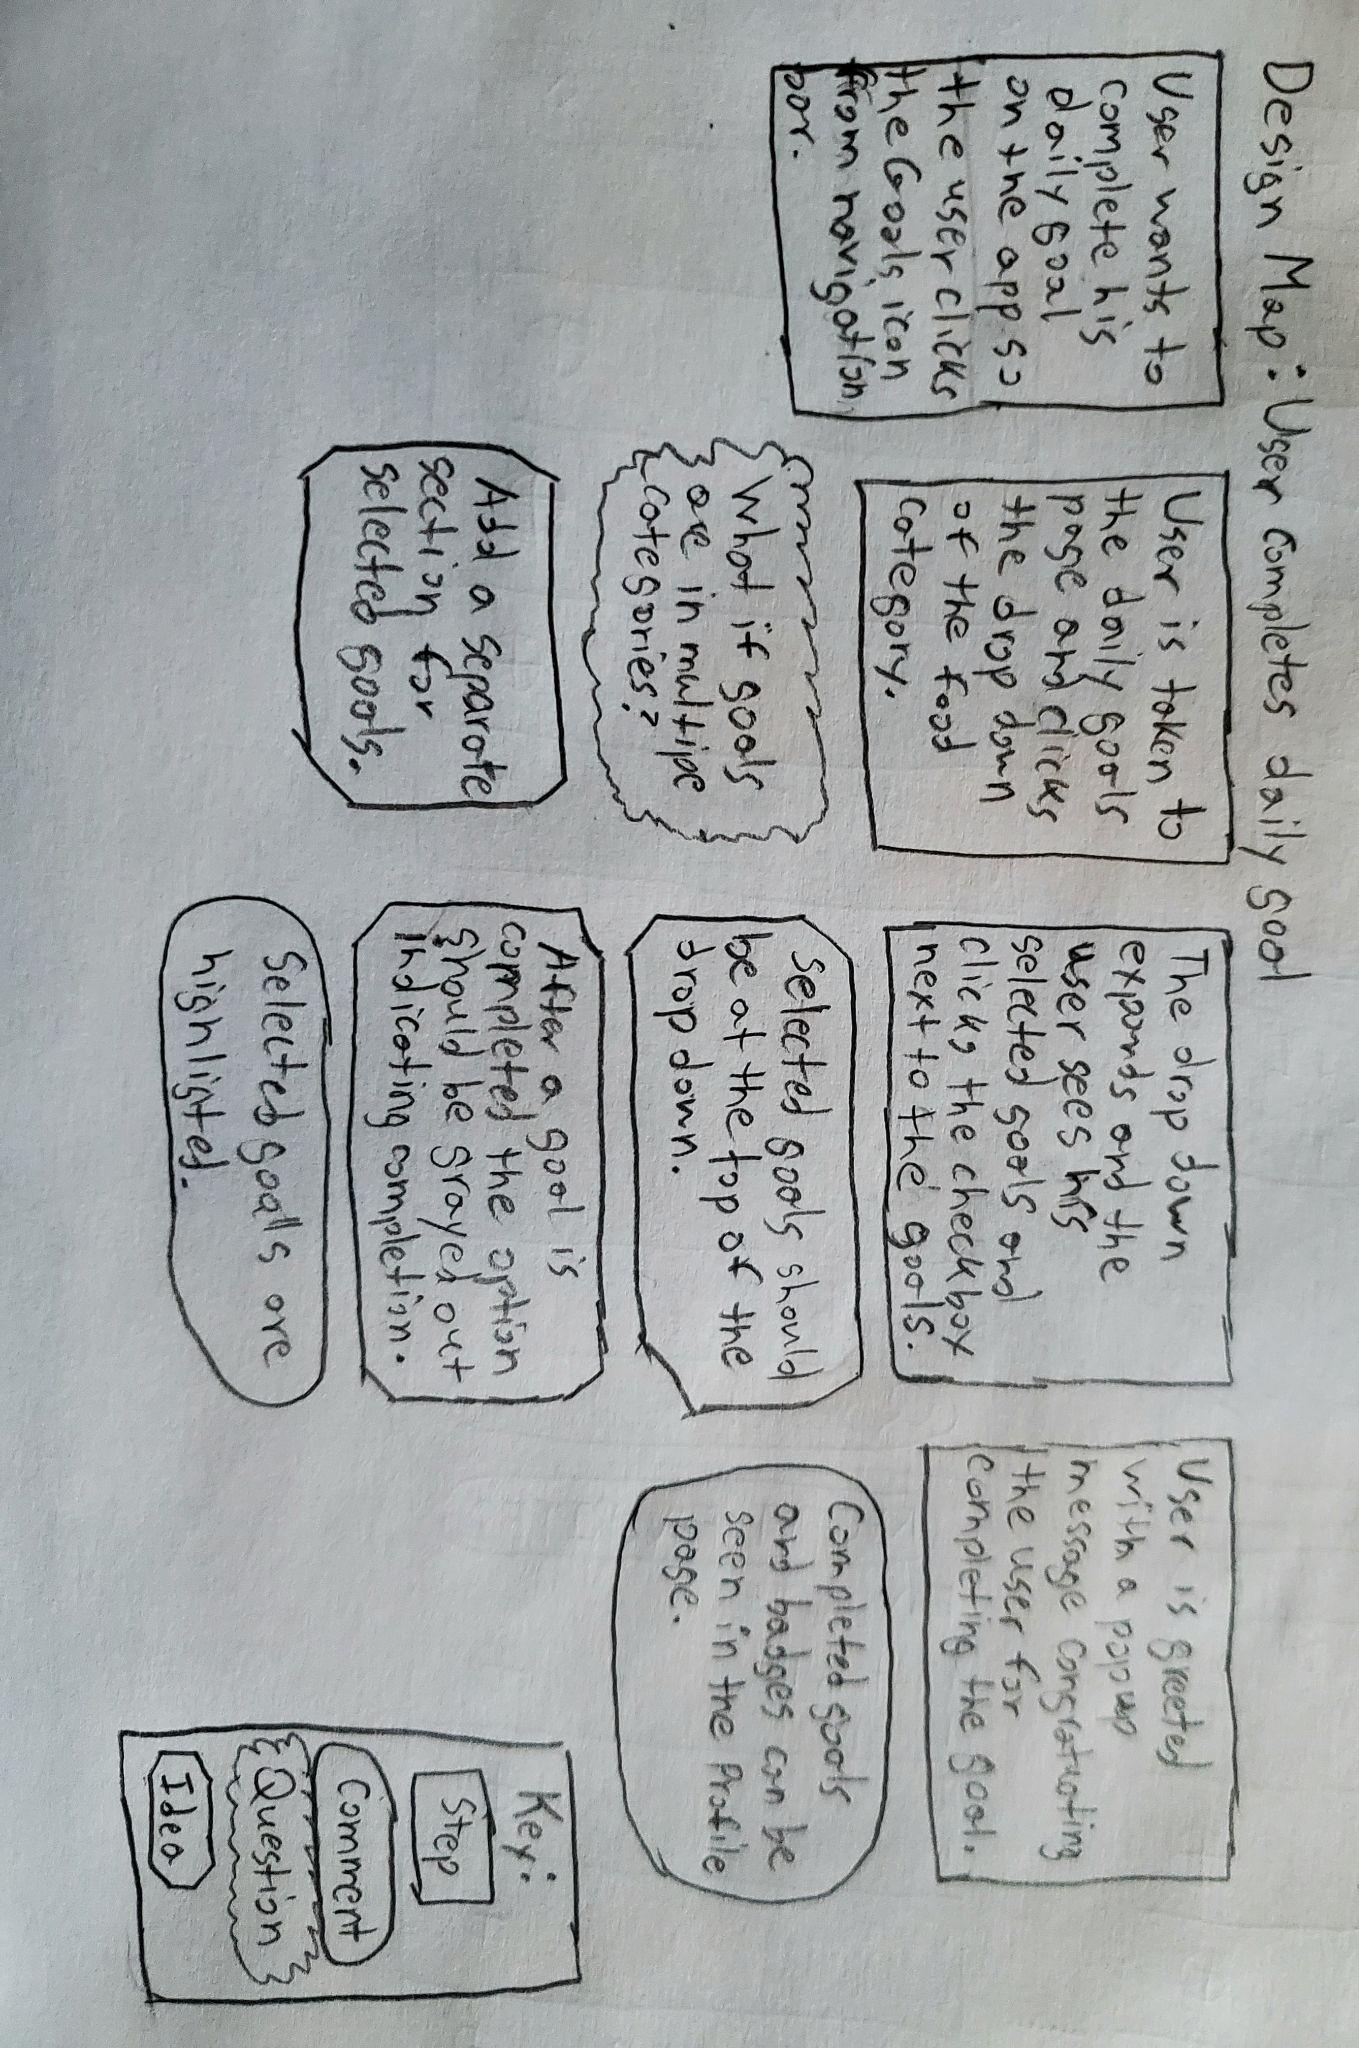 Design Map: User completes daily goal
User wants to
complete his
daily goal
on the app so
the user clicks
the Goals icon
from navigation
bar.
User is taken to
the daily goals
page and clicks
the drop down
of the food
category.
What if goals
are in multipe
categories?
Add a separate
section for
selected goals.
The drop down
expands and the
user sees his
selected goals and
clicks the checkbox
next to the goals.
Selected goals should
be at the top of the
drop down.
After a goal is
completed the option
should be grayed out
indicating completion.
Selected goalls are
highlighted.
User is greeted
with a popup
message congratuating
the user for
completing the goal.
Completed goals
and badges can be
seen in the Profile
page.
Key:
Step
Comment
Question
Idea